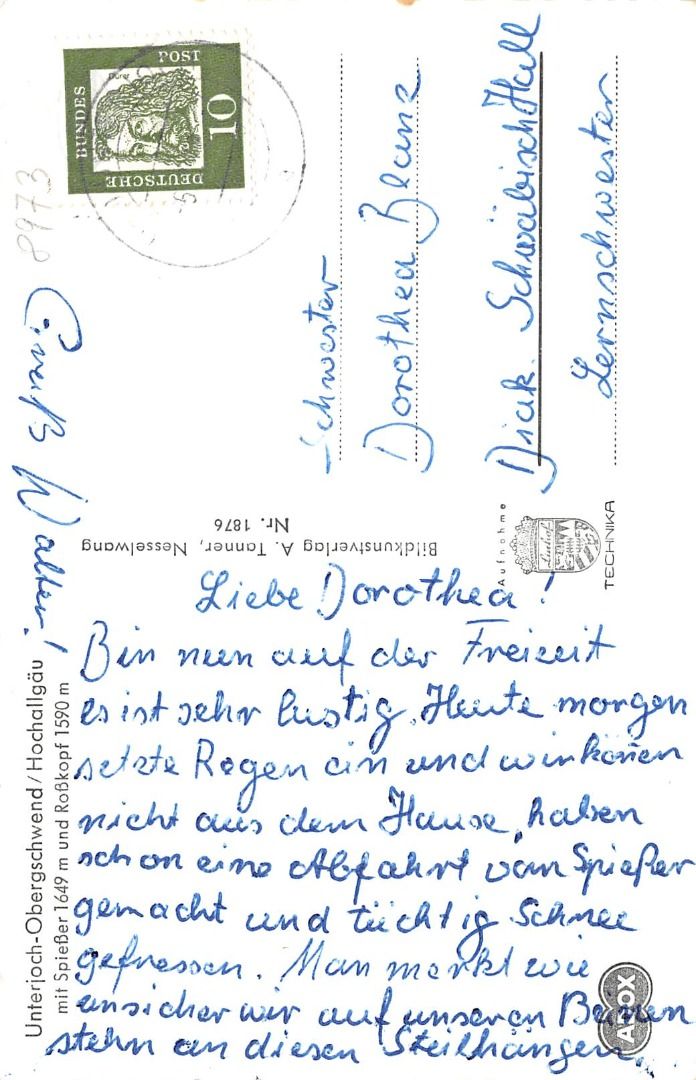 Liebe Dorothea!
Bin nun auf der Freizeit
es ist sehr lustig. Heute morgen
setzte Regen ein und wir können
nicht aus dem Hause, haben
schon eine Abfahrt vom Spießer
gemacht und tüchtig Schnee
gefressen. Man merkt wie
unsicher wir auf unseren Beinen
stehn an diesen Steilhängen.
Gruß Walter!
Schwester
Dorothea
Diak. Schwäbisch Hall
Lernschwester
DEUTSCHE
BUNDES
POST
10
Dürer
8973
Bildkunstverlag A. Tanner, Nesselwang
Nr. 1876
Aufnahme
Linhof
TECHNIKA
Unterjoch-Obergschwend / Hochallgäu
mit Spießer 1649 m und Roßkopf 1590 m
ADOX